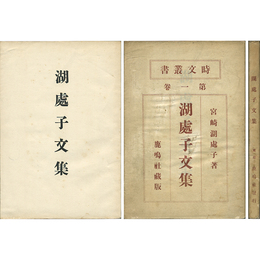 湖處子文集
時文叢書
第一卷
宮崎湖處子著
湖處子文集
鹿鳴社藏版
湖處子文集